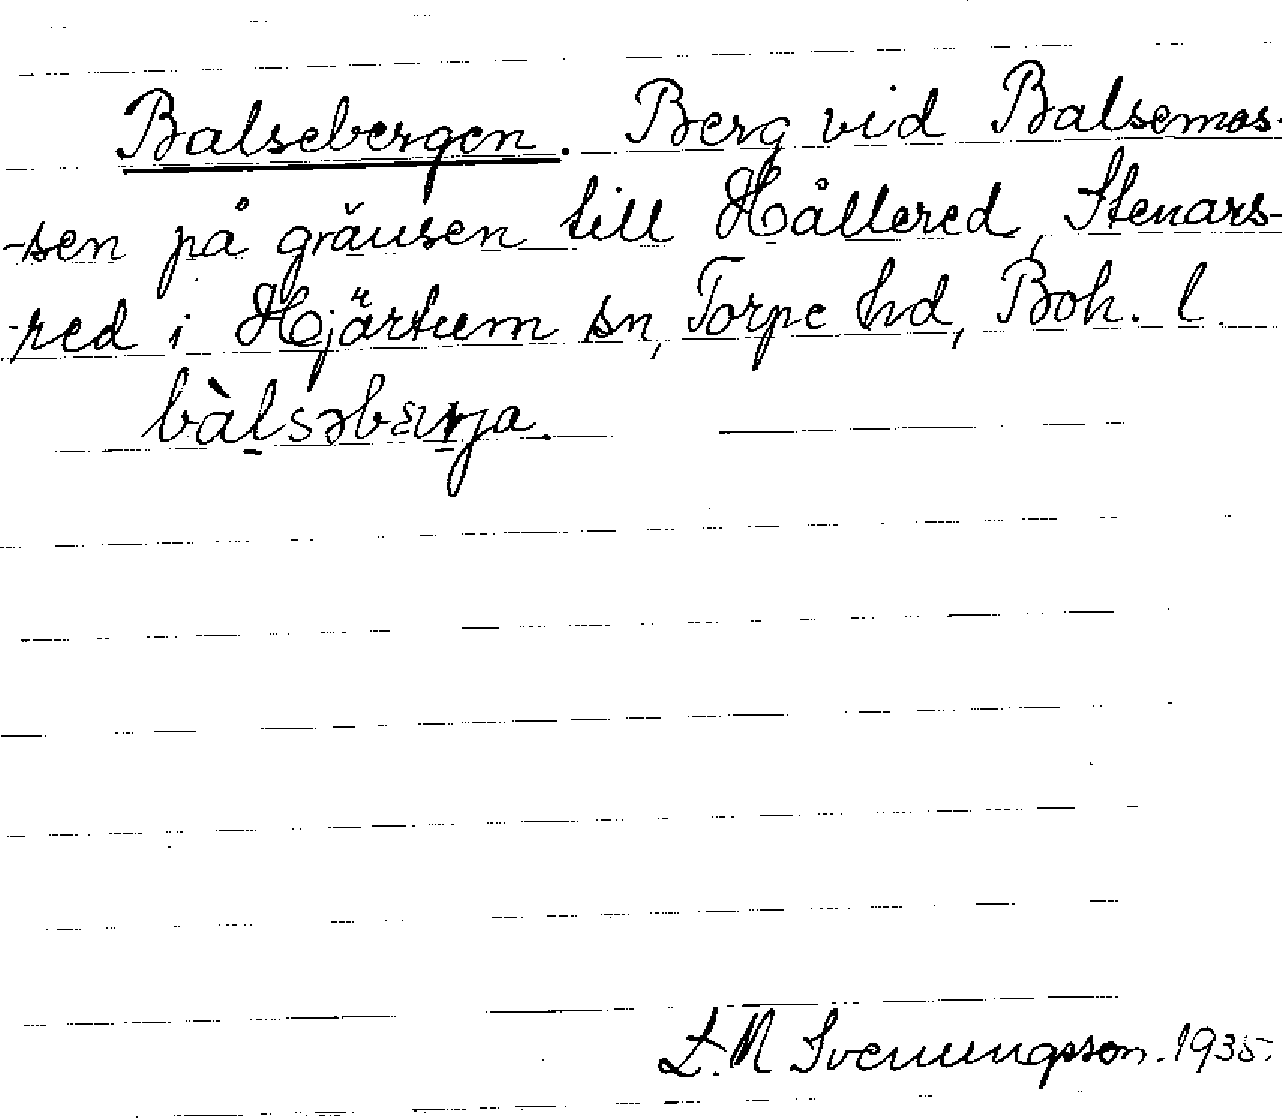 Balsebergen. Berg vid Balsemos-
-sen på gränsen till Hållered, Stenars-
-red i Hjärtum sn, Torpe hd, Boh. l.
bàlsəbærja.
L. N Svenungsson. 1935.